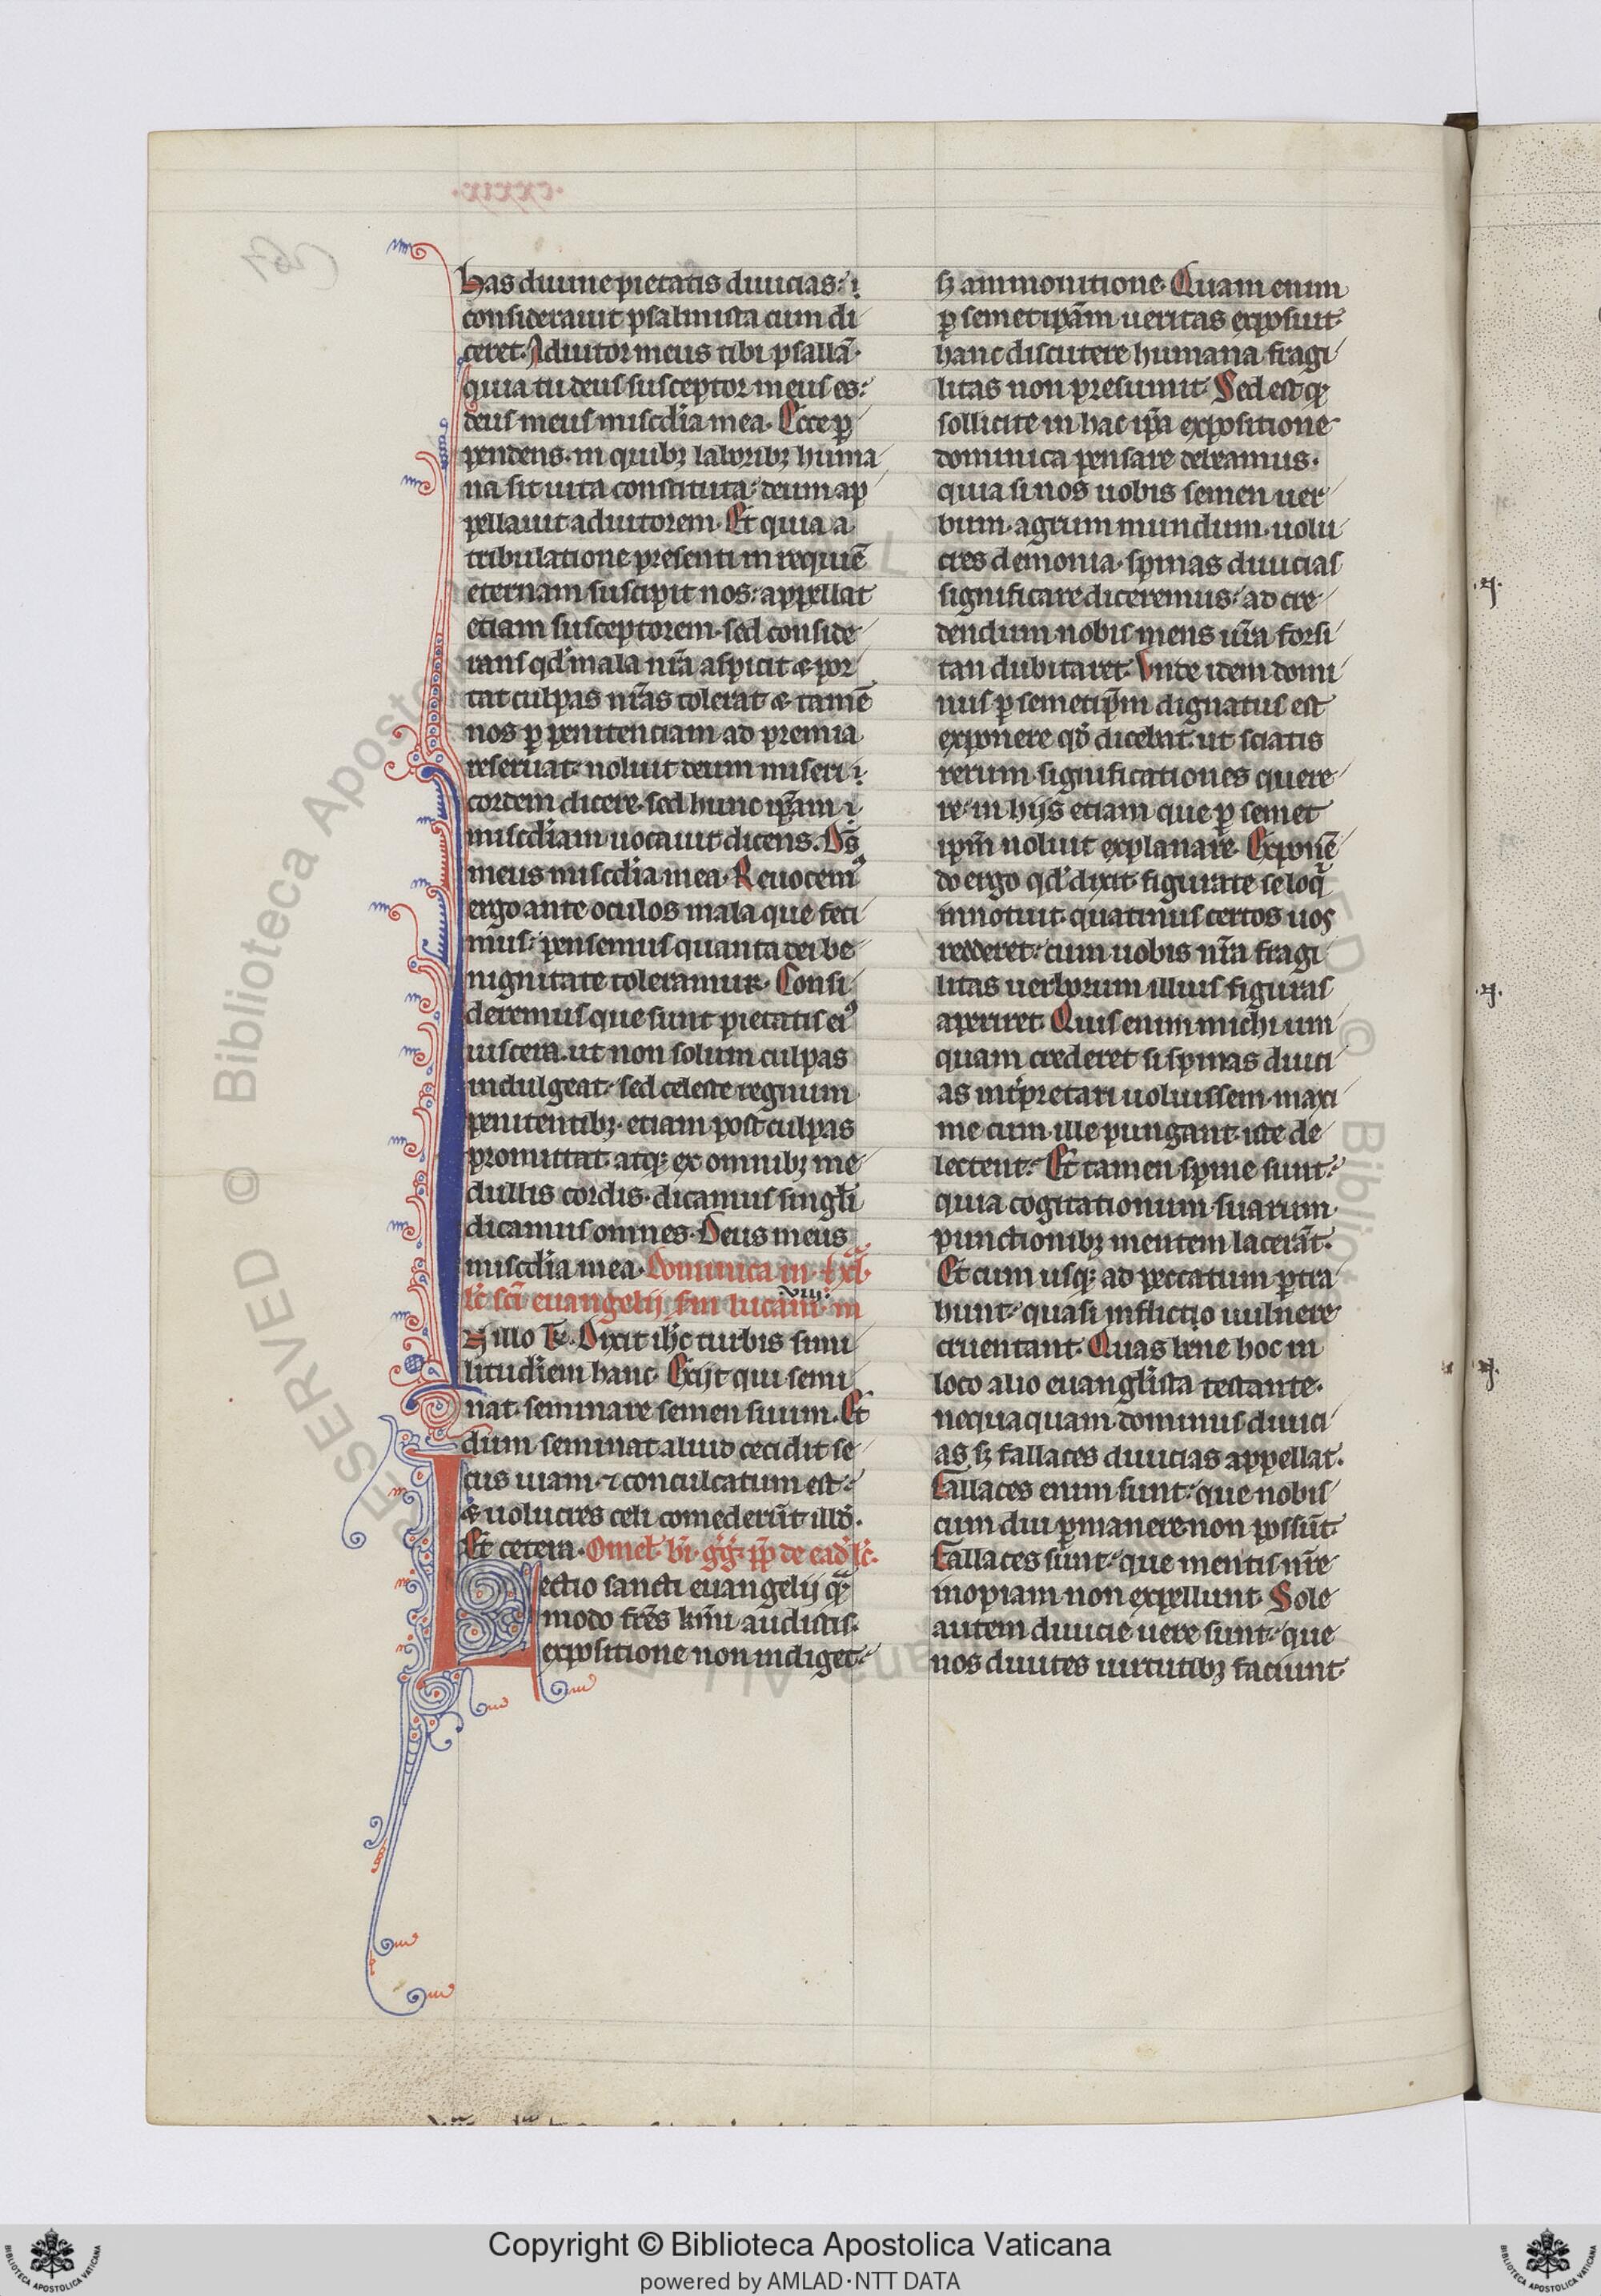 has diuine pietatis diuicias: ⁊
considerauit psalmista cum di
ceret. Adiutor meus tibi psallā.
quia tu deus susceptor meus es:
deus meus miscdia mea. Ecce ꝑ
pendens. in quibꝫ laboribꝫ huma
na sit uita constituta: deum ap
pellauit adiutorem. Et quia a
tribulatione presenti in requiē
eternam suscipit nos: appellat
etiam susceptorem. sed conside
rans qd mala nrā aspicit & por
tat culpas nrās tolerat & tamē
nos ꝑ penitenciam ad premia
reseruat. noluit deum miseri
cordem dicere. sed hunc ipsam
miscdiam uocauit dicens. Ds
meus miscdia mea. Reuocemꝰ
ergo ante oculos mala que feci
mus: pensemus quanta dei be
nignitate toleramur. Consi
deremus que sunt pietatis eiꝰ
uiscera. ut non solum culpas
indulgeat. sed celeste regnum
penitentibꝫ. etiam post culpas
promittat. atqꝫ ex omnibꝫ me
dullis cordis. dicamus singli
dicamus omnes. Deus meus
miscdia mea. Dominica in lxa.
lc sci euangelij. sm lucam. viii. in
illo tr. Dixit ihc turbis simi
litudiem hanc. Exijt qui semi
nat. seminare semen suum. Et
dum seminat aliud cecidit se
cus uiam. ⁊ conculcatum est:
& uolucres celi comederūt illd.
Et cetera. Omel. bi. gg. pp de ead lc.
Lectio sancti euangelij qͣ
modo frēs kmi audistis.
expositione non indiget.
sꝫ ammonitione. Quam enim
ꝑ semetipām ueritas exposuit.
hanc discutere humana fragi
litas non presumit. Sed est qꝫ
sollicite in hac ipā expositione
dominica pensare debeamus.
quia si nos uobis semen uer
bum. agrum mundum. uolu
cres demonia. spinas diuicias
significare diceremus: ad cre
dendum nobis mens urā forsi
tan dubitaret. Vnde idem domi
nus ꝑ semetipm dignatus est
exponere qd dicebat. ut sciatis
rerum significationes quere
re. in hijs etiam que ꝑ semet
ipm noluit explanare. Exponē
do ergo qd dixit. figurate se loq
innotuit. quatinus certos uos
redderet: cum uobis nrā fragi
litas uerborum illius figuras
aperiret. Quis enim michi um
quam crederet si spinas diuici
as intpretari uoluissem. maxi
me cum ille pungant. iste de
lectent: Et tamen spine sunt:
quia cogitationum suarum
punctionibꝫ mentem lacerāt.
Et cum usqꝫ ad peccatum ptra
hunt: quasi inflicto uulnere
cruentant. Quas bene hoc in
loco alio euanglista testante.
nequaquam dominus diuici
as sꝫ fallaces diuicias appellat.
Fallaces enim sunt: que nobis
cum diu ꝑmanere non possūt.
Fallaces sūnt: que mentis nrē
inopiam non expellunt. Sole
autem diuicie uere sunt: que
nos diuites uirtutibꝫ faciunt.
Copyright © Biblioteca Apostolica Vaticana
powered by AMLAD·NTT DATA